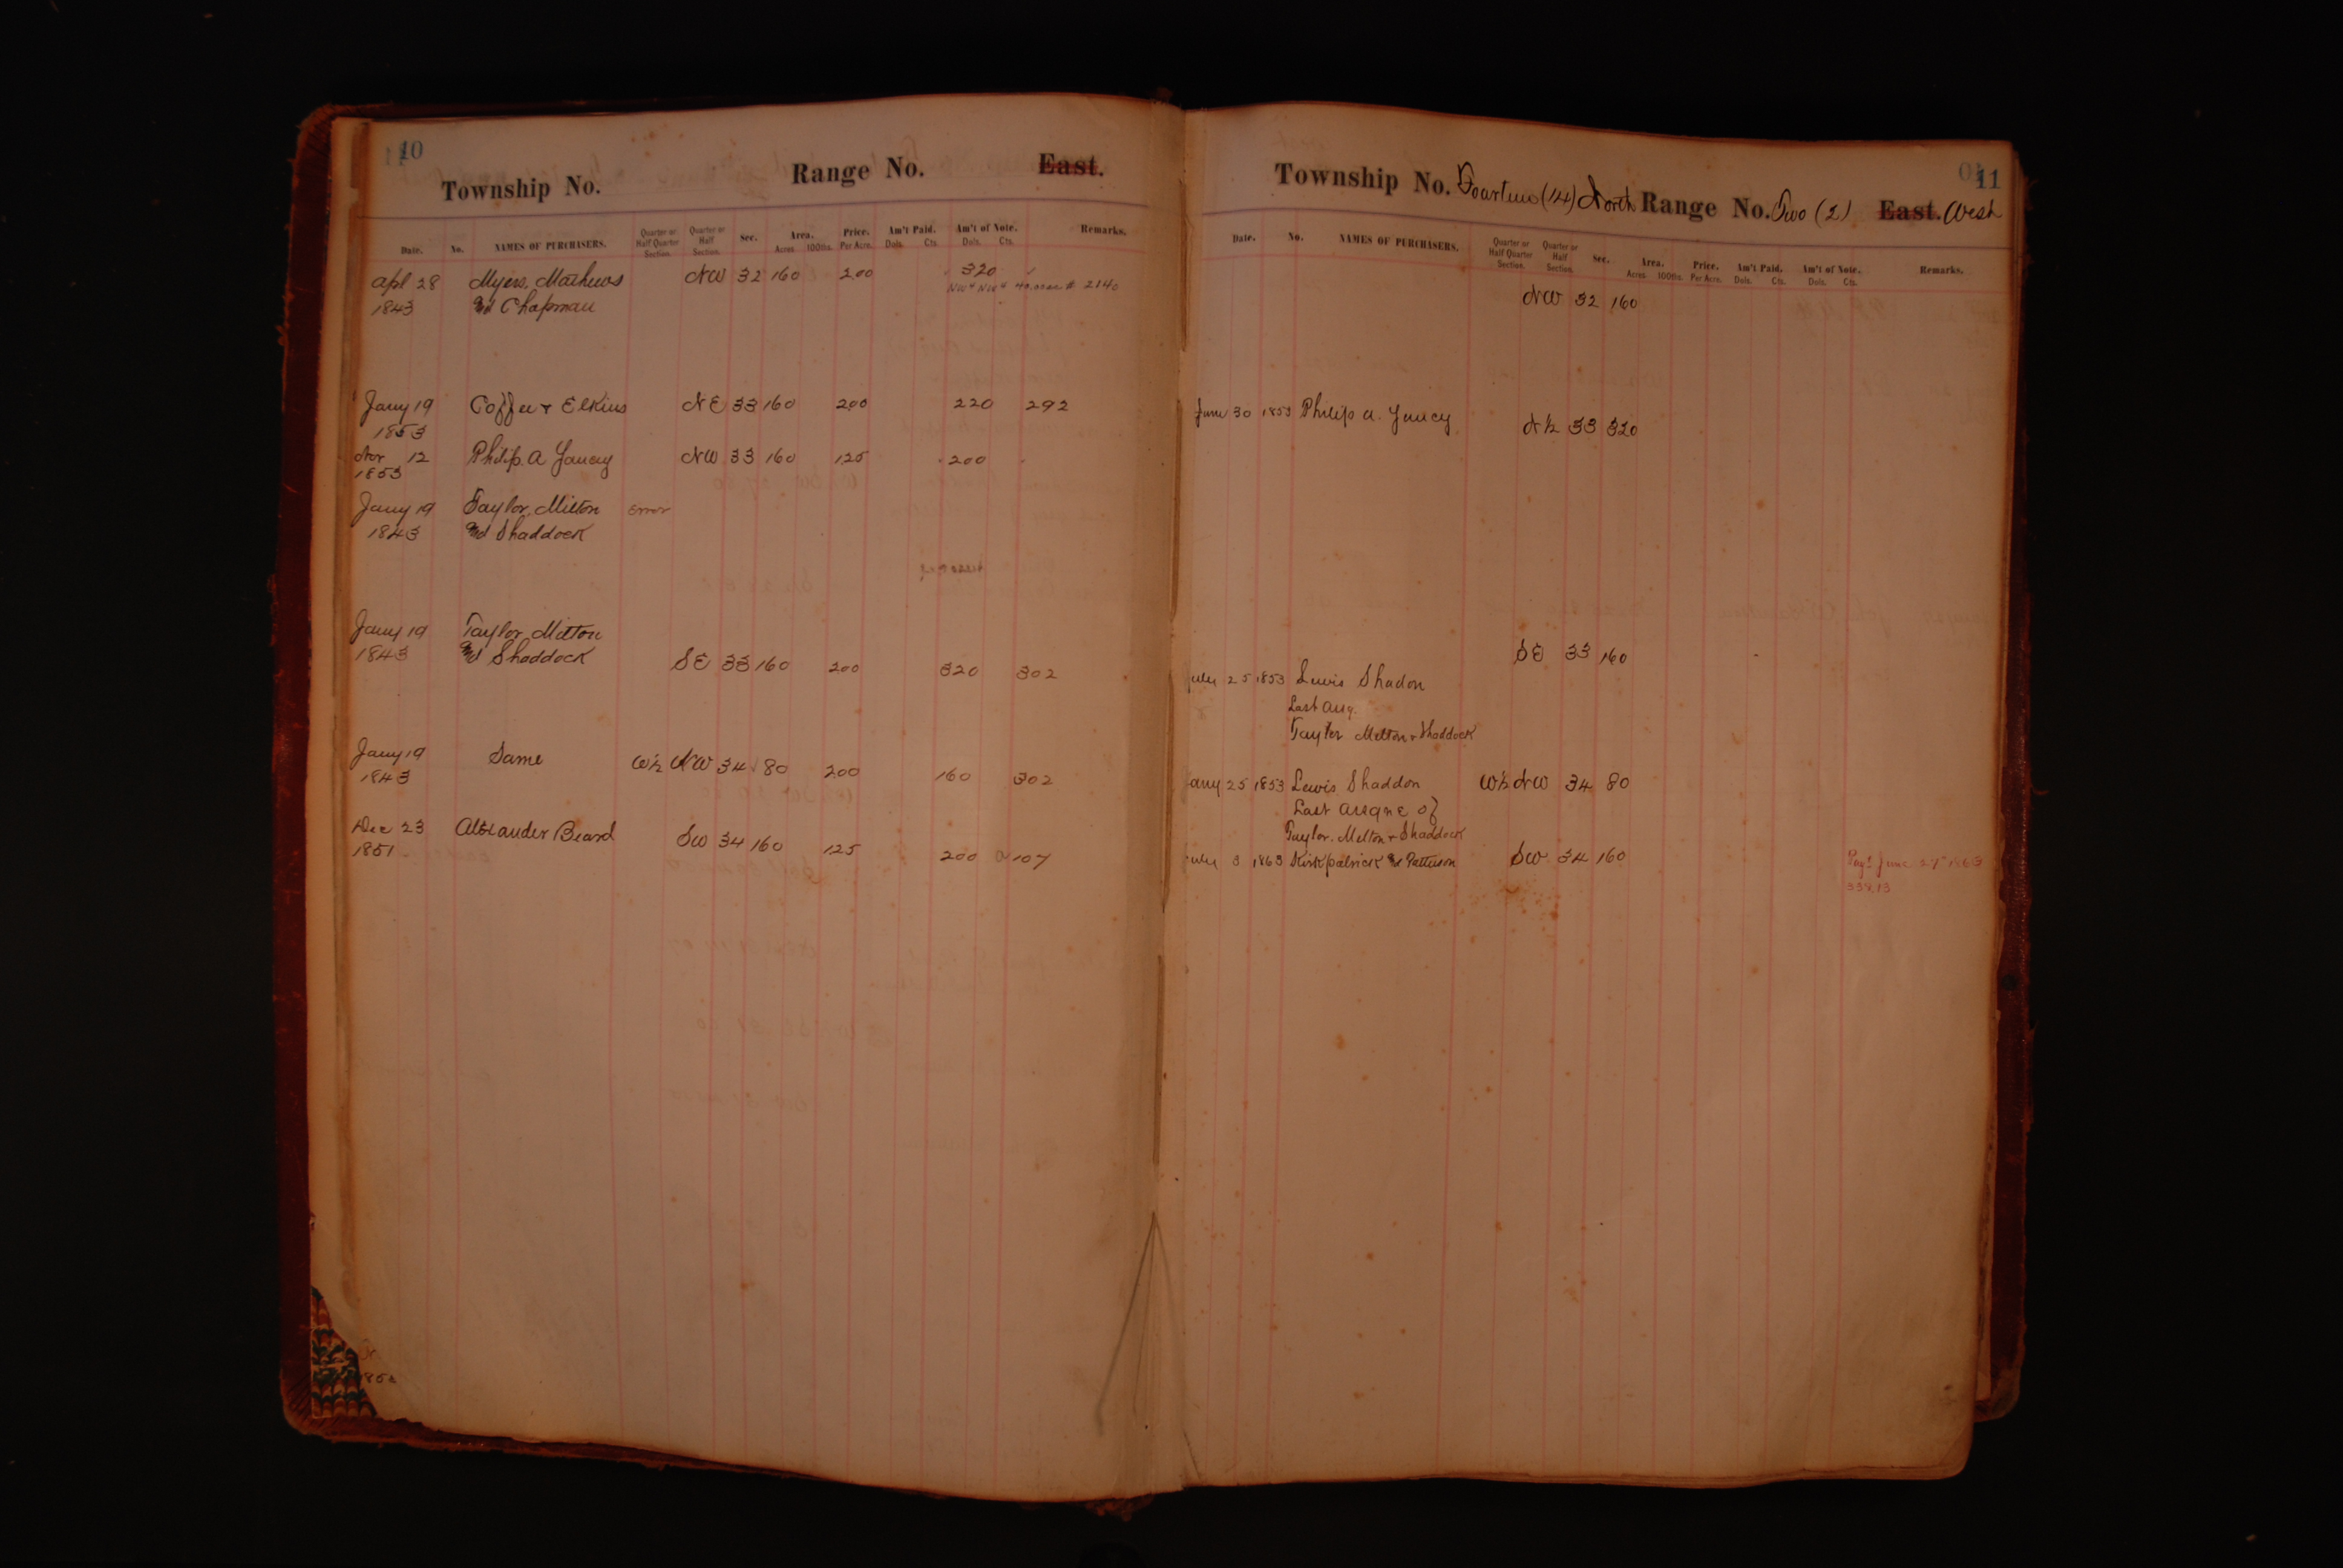 10
Township No. Range No. East.
Date. No. NAMES OF PURCHASERS. Quarter or Half Quarter Section. Quarter or Half Section. Sec. Area. Acres 100ths. Price. Per Acre. Am't Paid. Dols. Cts. Am't of Note. Dols. Cts. Remarks.
Apl 28 Myers, Mathews NW 32 160 200 320
1843 & Chapman 2140
Jany 19 Coffee & Elkins NE 33 160 200 220 292
1853
Nov 12 Philip A Yancey NW 33 160 125 200
1853
Jany 19 Taylor, Milton Error
1843 & Shaddock
Jany 19 Taylor Milton
1843 & Shaddock SE 33 160 200 320 302
Jany 19 Same W½ NW 34 80 200 160 302
1843
Dec 23 Alexander Beard SW 34 160 125 200 107
1851
11
Township No. Fourteen (14) North Range No. Two (2) East. West
Date. No. NAMES OF PURCHASERS. Quarter or Half Quarter Section. Quarter or Half Section. Sec. Area. Acres 100ths. Price. Per Acre. Am't Paid. Dols. Cts. Am't of Note. Dols. Cts. Remarks.
NW 32 160
June 30 1853 Philip A. Yancey N½ 33 320
SE 33 160
July 25 1853 Lewis Shadon
Last Assg.
Taylor Melton & Shaddock
Jany 25 1853 Lewis Shaddon W½ NW 34 80
Last Assgne of
Taylor. Melton & Shaddock
July 3 1863 Kirkpatrick & Patterson SW 34 160 Pay't June 27" 1863
338.13